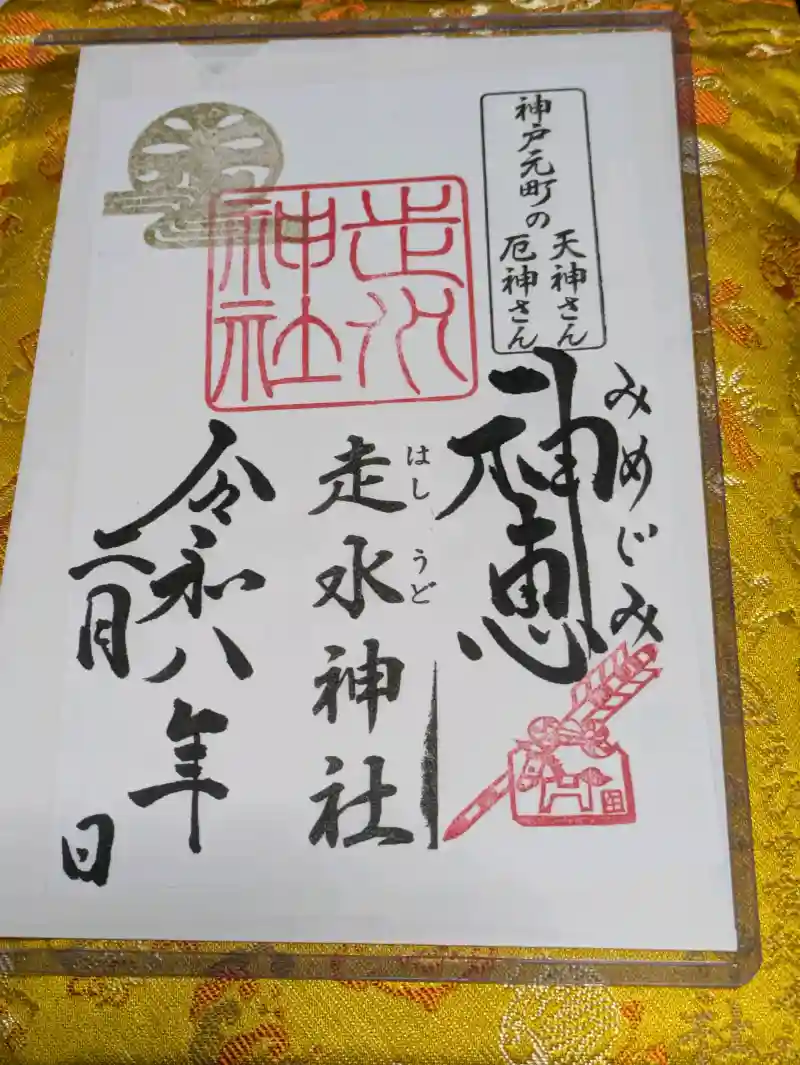 神戸元町の
天神さん
厄神さん
みめぐみ
神恵
走水神社
はしうど
走水神社
令和八年
二月
日